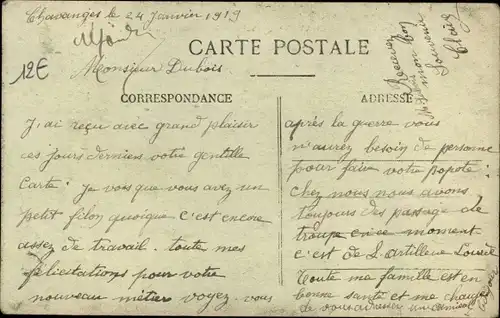 Chavanges le 24 Janvier 1919
12€
CARTE POSTALE
Monsieur Dubois
CORRESPONDANCE
J'ai reçu avec grand plaisir
ces jours derniers votre gentille
Carte: je vois que vous avez un
petit filon quoique c'est encore
assez de travail. toute mes
félicitations pour votre
nouveau métier voyez-vous
ADRESSE
après la guerre vous
n'aurez besoin de personne
pour faire votre popote:
chez nous nous avons
toujours des passage de
troupe en ce moment
c'est de L'artillerie Lourde
Toute ma famille est en
bonne santé et me charge
de vous
Recevez
mon bon
Souvenir